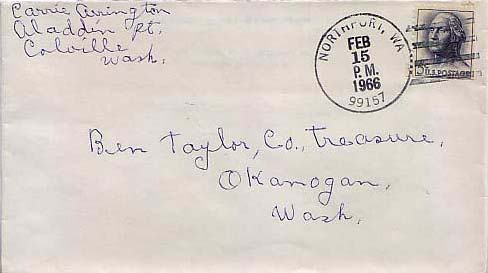 Carrie Arrington
Aladdin Rt.
Colville
Wash.
NORTHPORT, WA
FEB
15
P.M.
1966
99157
U.S. POSTAGE
Ben Taylor, Co., treasure,
Okanogan,
Wash,